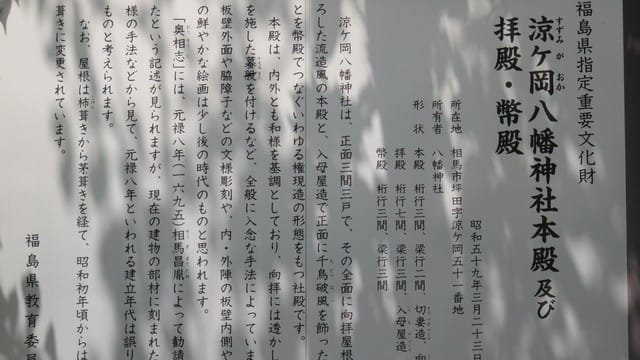 福島県指定重要文化財
涼ケ岡八幡神社本殿及び
すずみ が おか
拝殿・幣殿
昭和五十九年三月二十三日
所在地 相馬市坪田字涼ケ岡五十一番地
所有者 八幡神社
形状 本殿 桁行三間、梁行二間、切妻造、向
拝殿 桁行七間、梁行三間、入母屋造
幣殿 桁行三間、梁行三間
涼ケ岡八幡神社は、正面三間三戸で、その全面に向拝屋根
ろした流造風の本殿と、入母屋造で正面に千鳥破風を飾った
とを幣殿でつなぐいわゆる権現造の形態をもつ社殿です。
本殿は、内外とも和様を基調としており、向拝には透かし
を施した蟇股を付けるなど、全般に入念な手法によっていま
板壁外面や脇障子などの文様彫刻や、内・外陣の板壁内側や
の鮮やかな絵画は少し後の時代のものと思われます。
「奥相志」には、元禄八年(一六九五)相馬昌胤によって勧請
たという記述が見られますが、現在の建物の部材に刻まれた
様の手法などから見て、元禄八年といわれる建立年代は誤り
ものと考えられます。
なお、屋根は柿葺きから茅葺きを経て、昭和初年頃からは
葺きに変更されています。
福島県教育委員